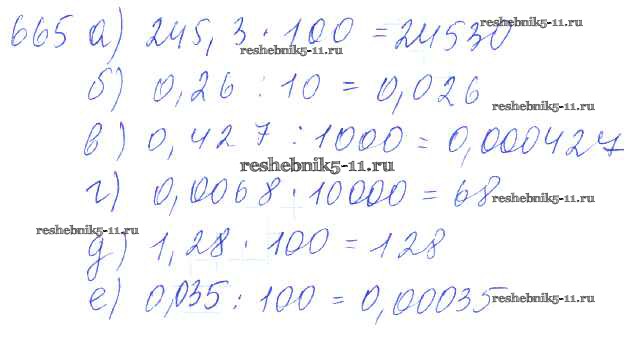 665 а) 245,3 · 100 = 24530
reshebnik5-11.ru
reshebnik5-11.ru
б) 0,26 : 10 = 0,026
reshebnik5-11.ru
в) 0,427 : 1000 = 0,000427
reshebnik5-11.ru
г) 0,0068 · 10000 = 68
reshebnik5-11.ru
reshebnik5-11.ru
д) 1,28 · 100 = 128
е) 0,035 : 100 = 0,00035
reshebnik5-11.ru